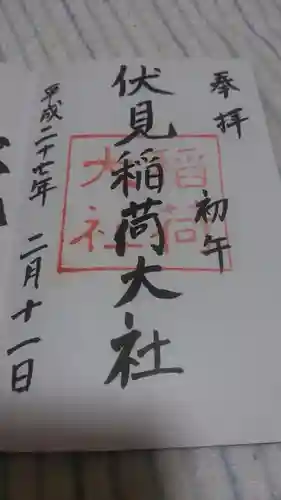 奉拝
初午
伏見稲荷大社
稲荷
大社
平成二十七年 二月十一日